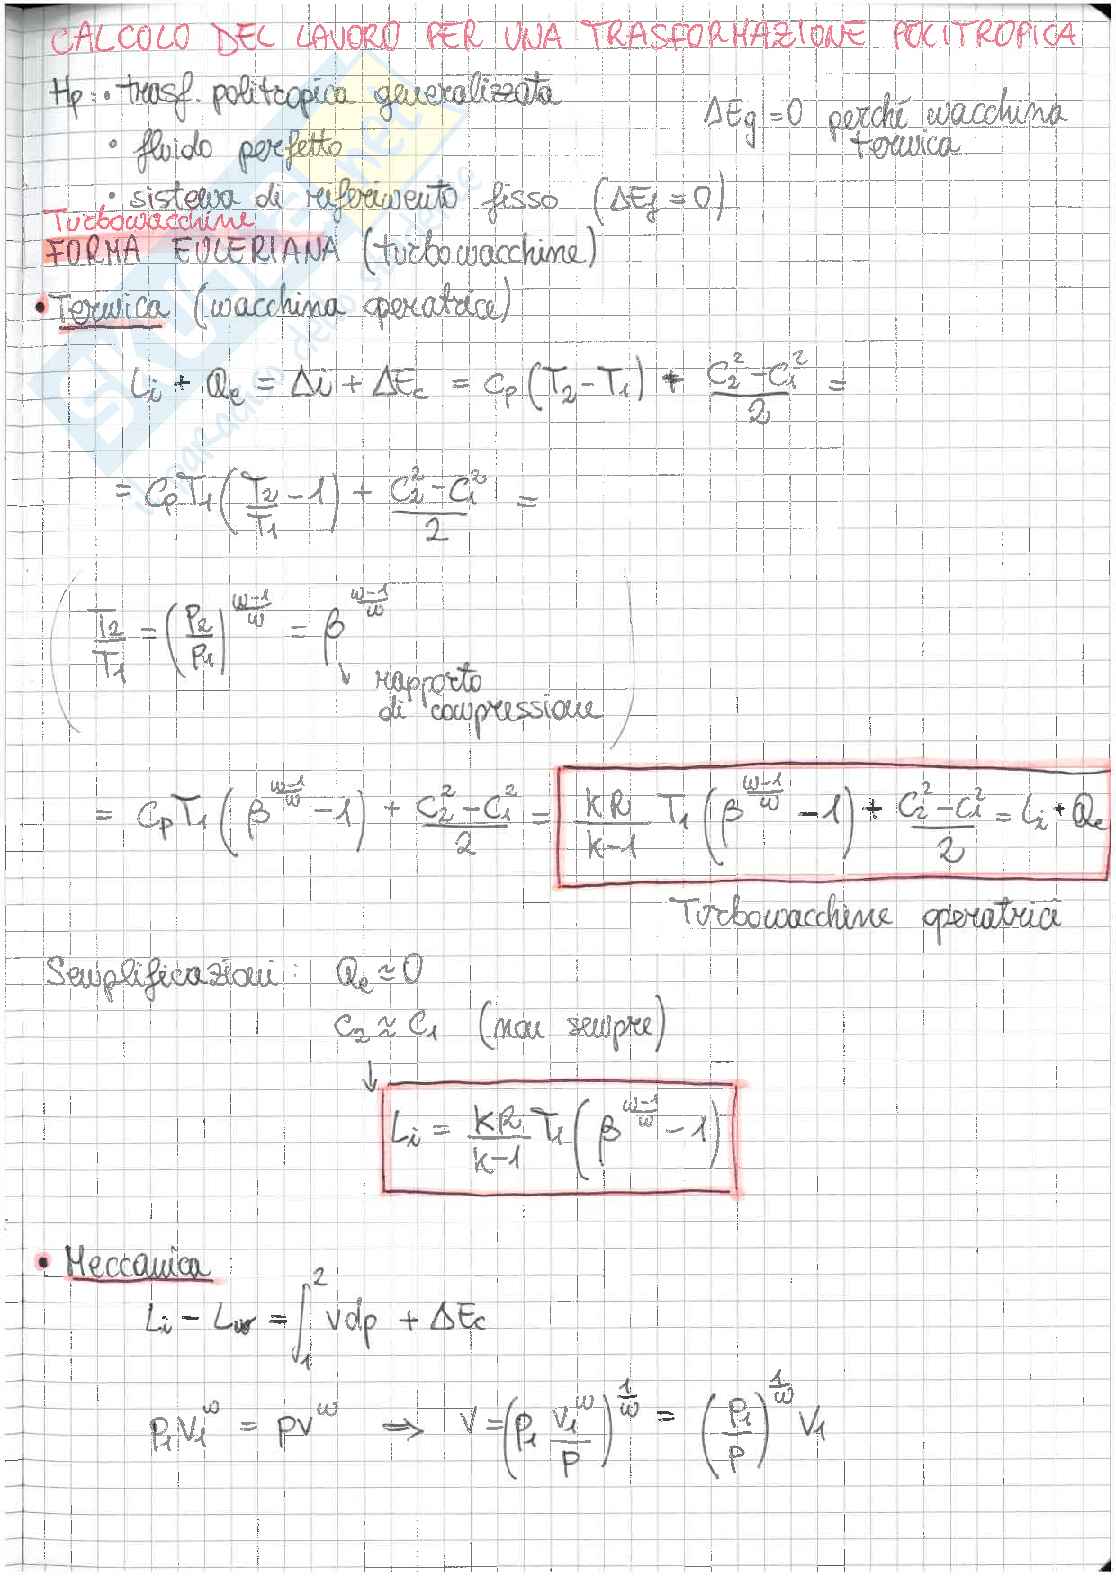 CALCOLO DEL LAVORO PER UNA TRASFORMAZIONE POLITROPICA
Hp: • trasf. politropica generalizzata
ΔEg = 0 perché macchina termica
• fluido perfetto
• sistema di riferimento fisso (ΔEf = 0)
Turbomacchine
FORMA EULERIANA (turbomacchine)
• Termica (macchina operatrice)
Li + Qe = Δi + ΔEc = Cp (T2 - T1) + (C2² - C1²)/2 =
= Cp T1 (T2/T1 - 1) + (C2² - C1²)/2 =
(T2/T1 = (P2/P1)^((m-1)/m) = β^((m-1)/m)
↓ rapporto
di compressione)
= Cp T1 (β^((m-1)/m) - 1) + (C2² - C1²)/2 = KR/(K-1) T1 (β^((m-1)/m) - 1) + (C2² - C1²)/2 = Li + Qe
Turbomacchine operatrici
Semplificazioni: Qe ≈ 0
C2 ≈ C1 (non sempre)
↓
Li = KR/(K-1) T1 (β^((m-1)/m) - 1)
• Meccanica
Li - Lw = ∫₁² vdp + ΔEc
P1 V1^m = PV^m ⇒ V = (P1 V1^m/P)^(1/m) = (P1/P)^(1/m) V1